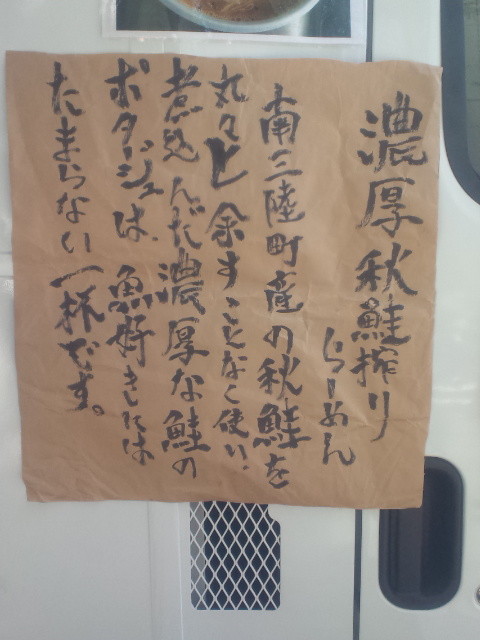 濃厚秋鮭搾り
らーめん
南三陸町産の秋鮭を
丸々と余すことなく使い、
煮込んだ濃厚な鮭の
ポタジュは、魚好きには
たまらない一杯です。